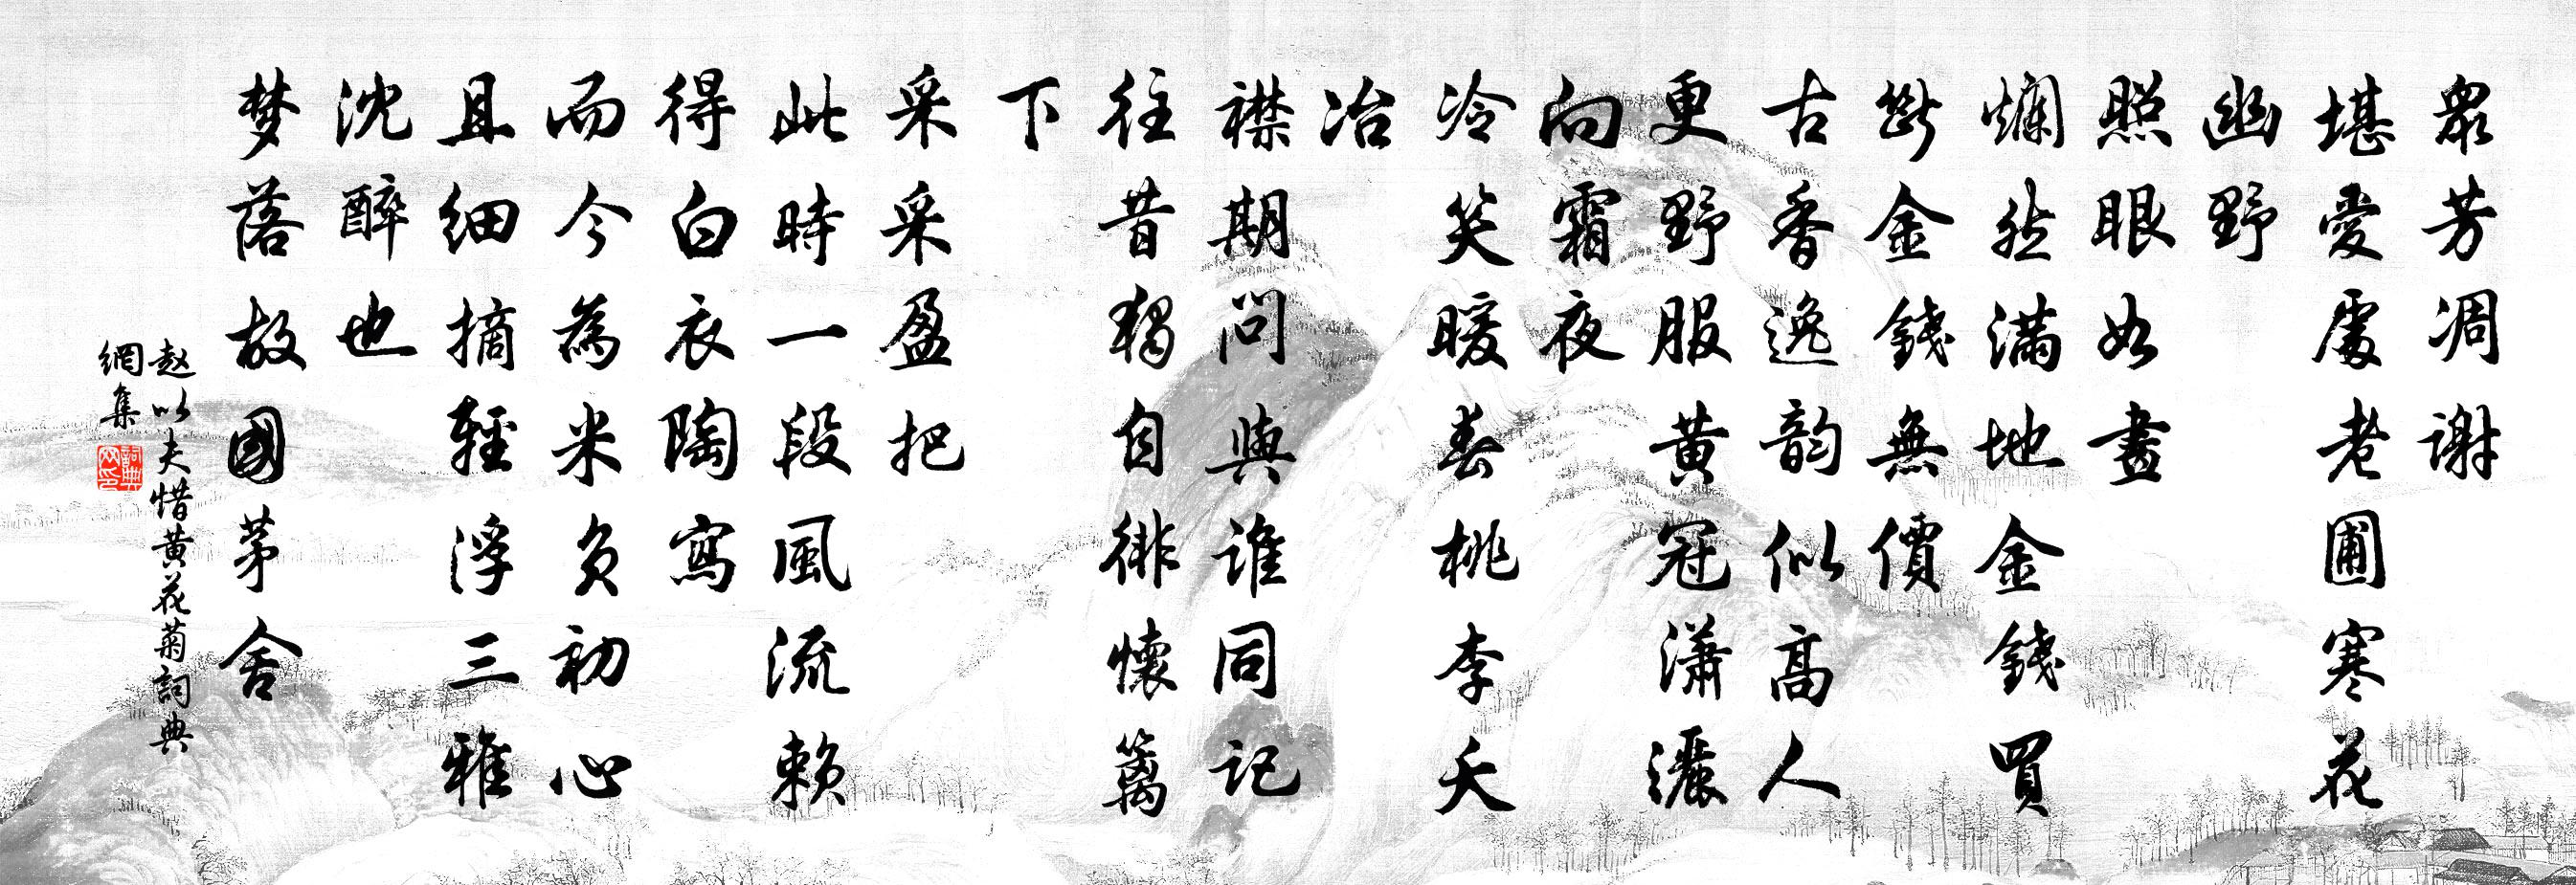 衆芳凋謝
堪愛處老圃寒花
幽野
照眼如畫
爛然滿地金錢買
斷金錢無價
古香逸韵似高人
更野服黃冠瀟灑
向霜夜
冷笑暖春桃李夭
冶
襟期問與誰同記
往昔獨自徘懷籬
下
采采盈把
此時一段風流賴
得白衣陶寫
而今為米負初心
且細摘輕浮三雅
沈醉也
梦落故國茅舍
赵以夫惜黄花菊詞典
網集
詞典
网印